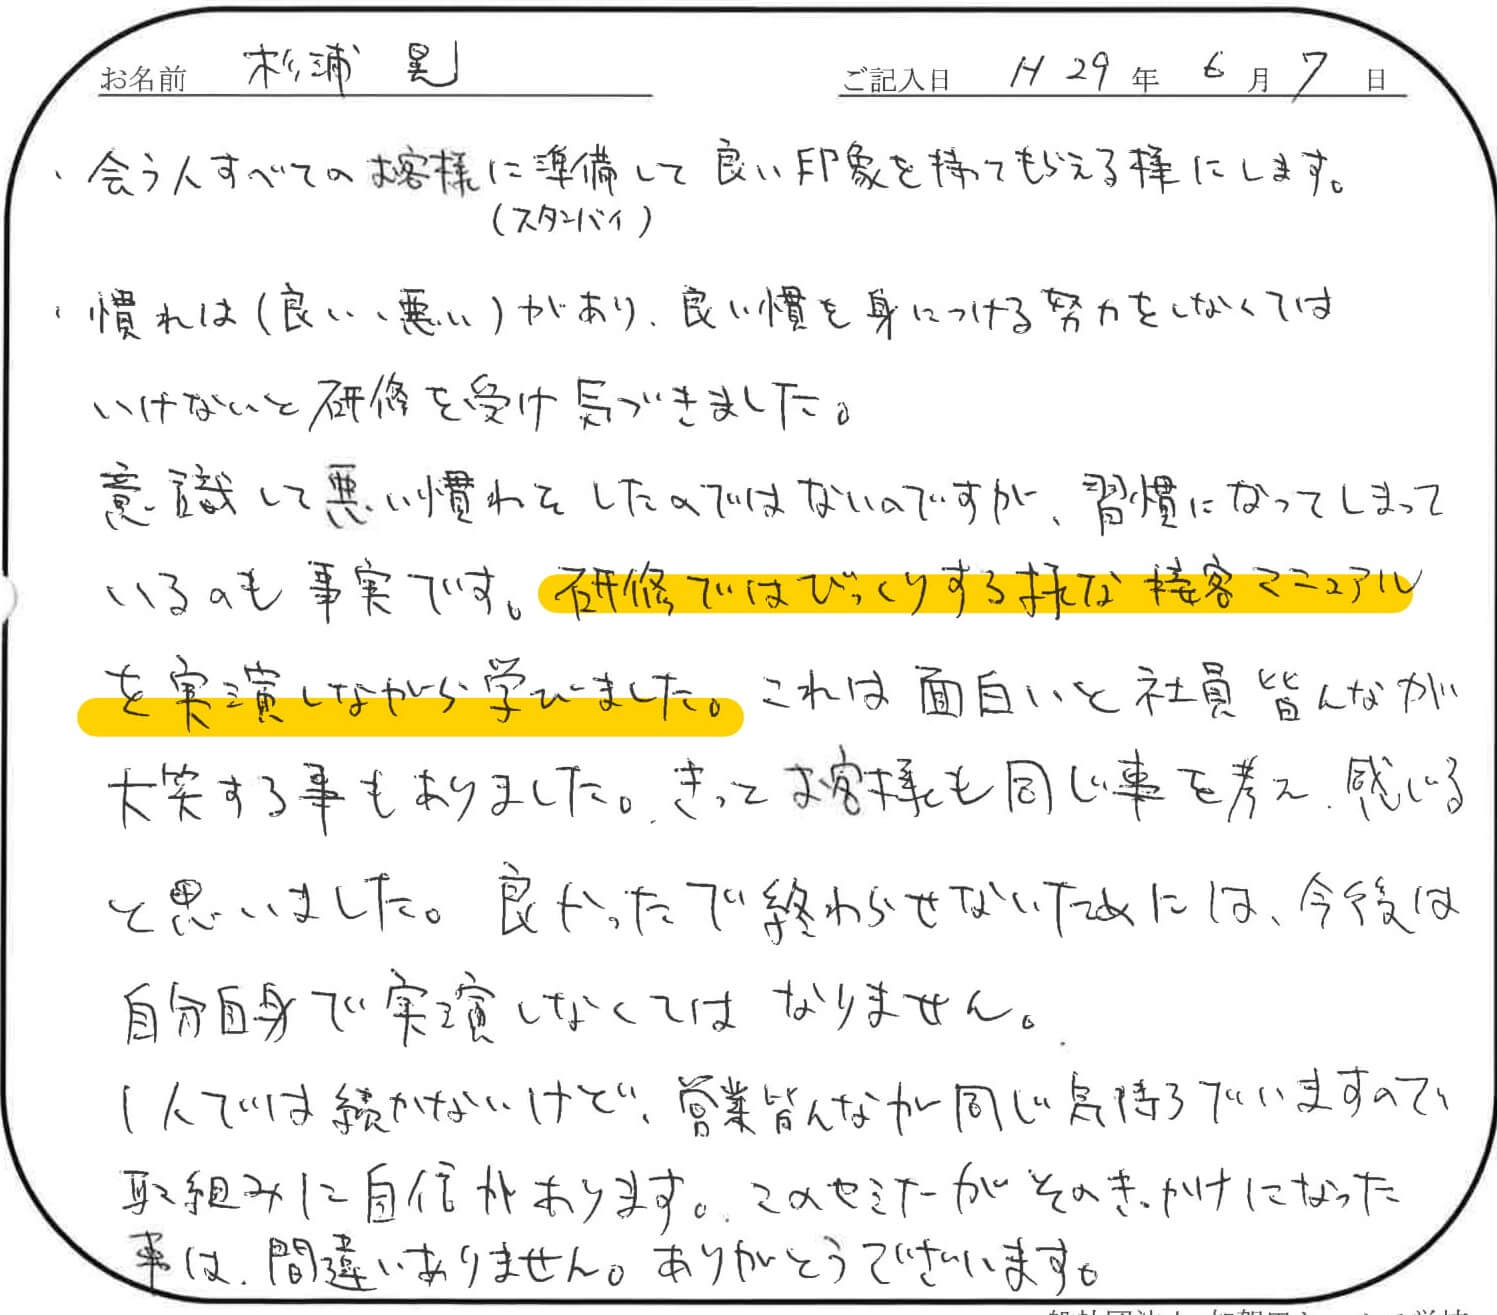 お名前 杉浦 晃 ご記入日 H 29 年 6 月 7 日
・会う人すべてのお客様に準備して良い印象を持ってもらえる様にします。
(スタンバイ)
・慣れは(良い、悪い)があり、良い慣を身につける努力をしなくては
いけないと研修を受け気づきました。
意識して悪い慣れをしたのではないのですが、習慣になってしまって
いるのも事実です。研修ではびっくりする様な接客マニュアル
を実演しながら学びました。これは面白いと社員皆んなが
大笑する事もありました。きっとお客様も同じ事を考え、感じる
と思いました。良かったで終わらせないためには、今後は
自分自身で実演しなくてはなりません。
1人では続かないけど、営業皆んなが同じ気持ちでいますので
取組みに自信があります。このセミナーがそのきっかけになった
事は、間違いありません。ありがとうございます。